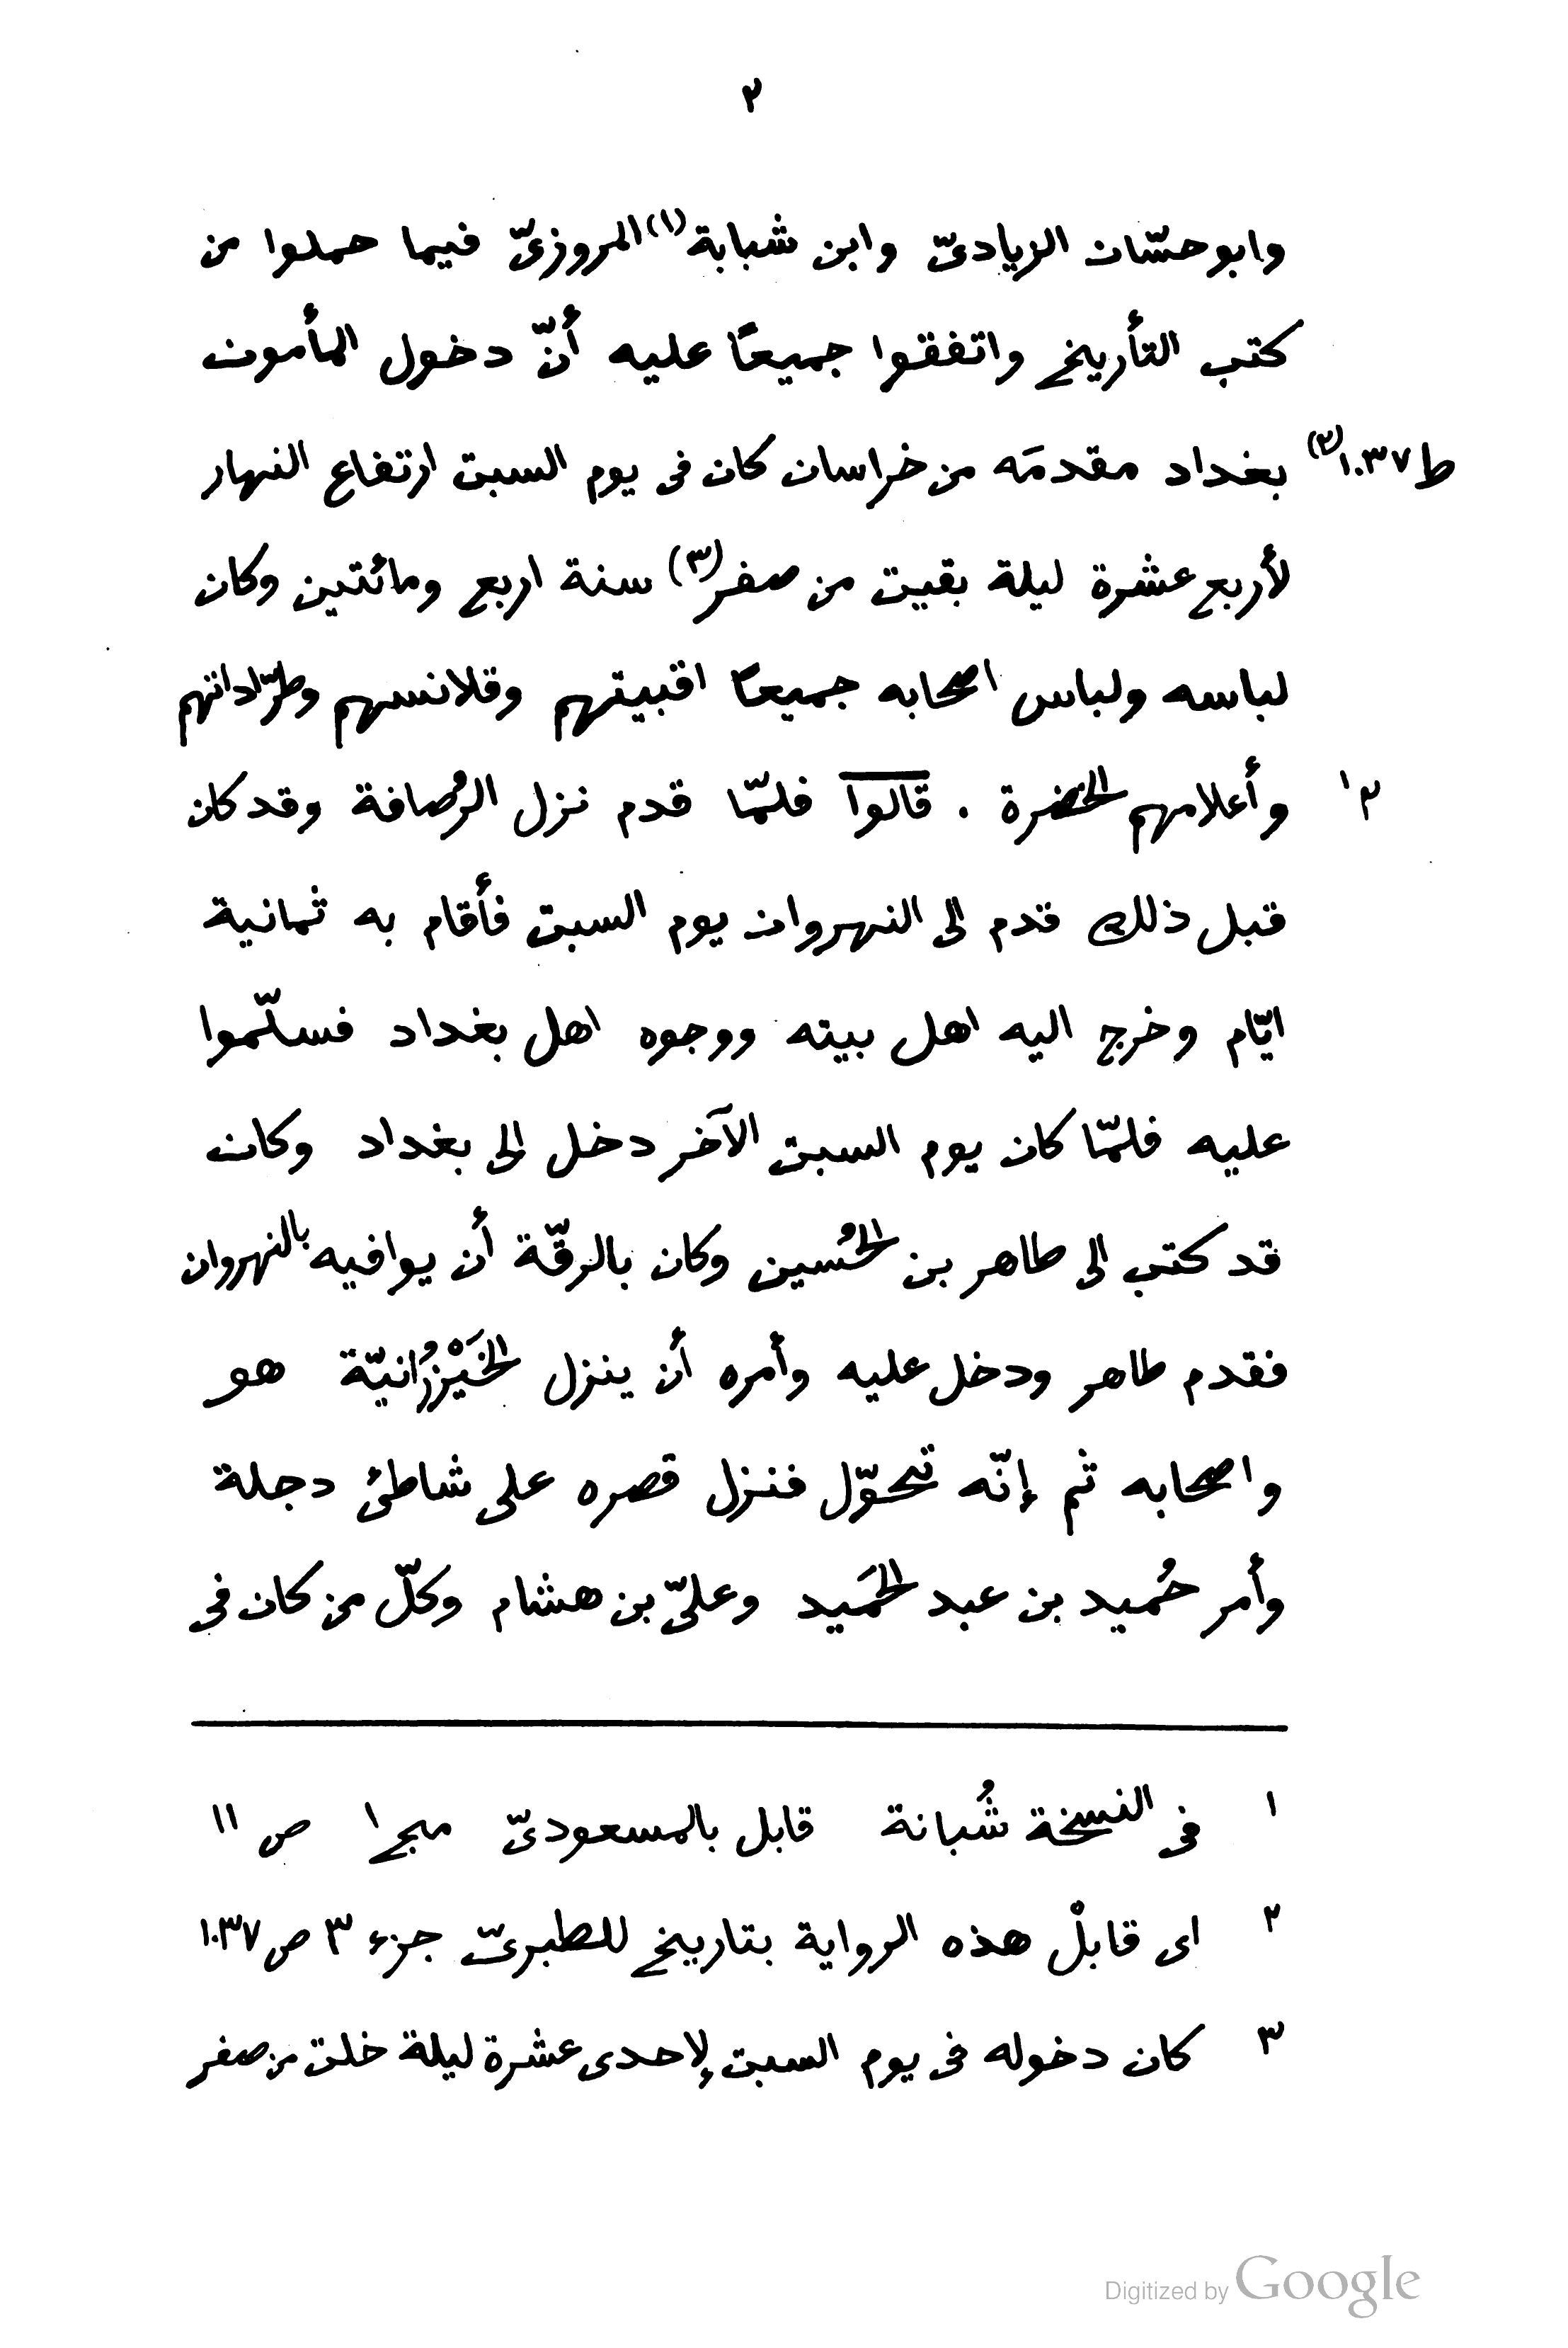 ٢
وابو حسّان الزيادىّ وابن شبابة(١) المروزىّ فيما حملوا من
كتب التأريخ واتفقوا جميعًا عليه أنّ دخول المأمون
ط ١٠٣٧(٢) بغداد مقدمَه من خراسان كان فى يوم السبت ارتفاع النهار
لأربع عشرة ليلة بقيت من صفر(٣) سنة اربع ومائتين وكان
لباسه ولباس اصحابه جميعًا اقبيتهم وقلانسهم وطرّاداتهم
٢ا وأعلامهم الخضرة . قالوا فلمّا قدم نزل الرُصافة وقد كان
قبل ذلك قدم الى النهروان يوم السبت فأقام به ثمانية
ايّام وخرج اليه اهل بيته ووجوه اهل بغداد فسلّموا
عليه فلمّا كان يوم السبت الآخر دخل الى بغداد وكان
قد كتب الى طاهر بن الحُسين وكان بالرقّة أن يوافيه بالنهروان
فقدم طاهر ودخل عليه وأمره أن ينزل الخَيْزُرانيّة هو
واصحابه ثم إنّه تحوّل فنزل قصره على شاطئ دجلة
وأمر حُميد بن عبد الحَميد وعلىّ بن هشام وكلّ من كان فى
١ فى النسخة شُبانة قابل بالمسعودىّ مج ١ ص ١١
٢ اى قابلْ هذه الرواية بتاريخ للطبرىّ جزء ٣ ص ١٠٣٧
٣ كان دخوله فى يوم السبت لإحدى عشرة ليلة خلت من صفر
Digitized by Google